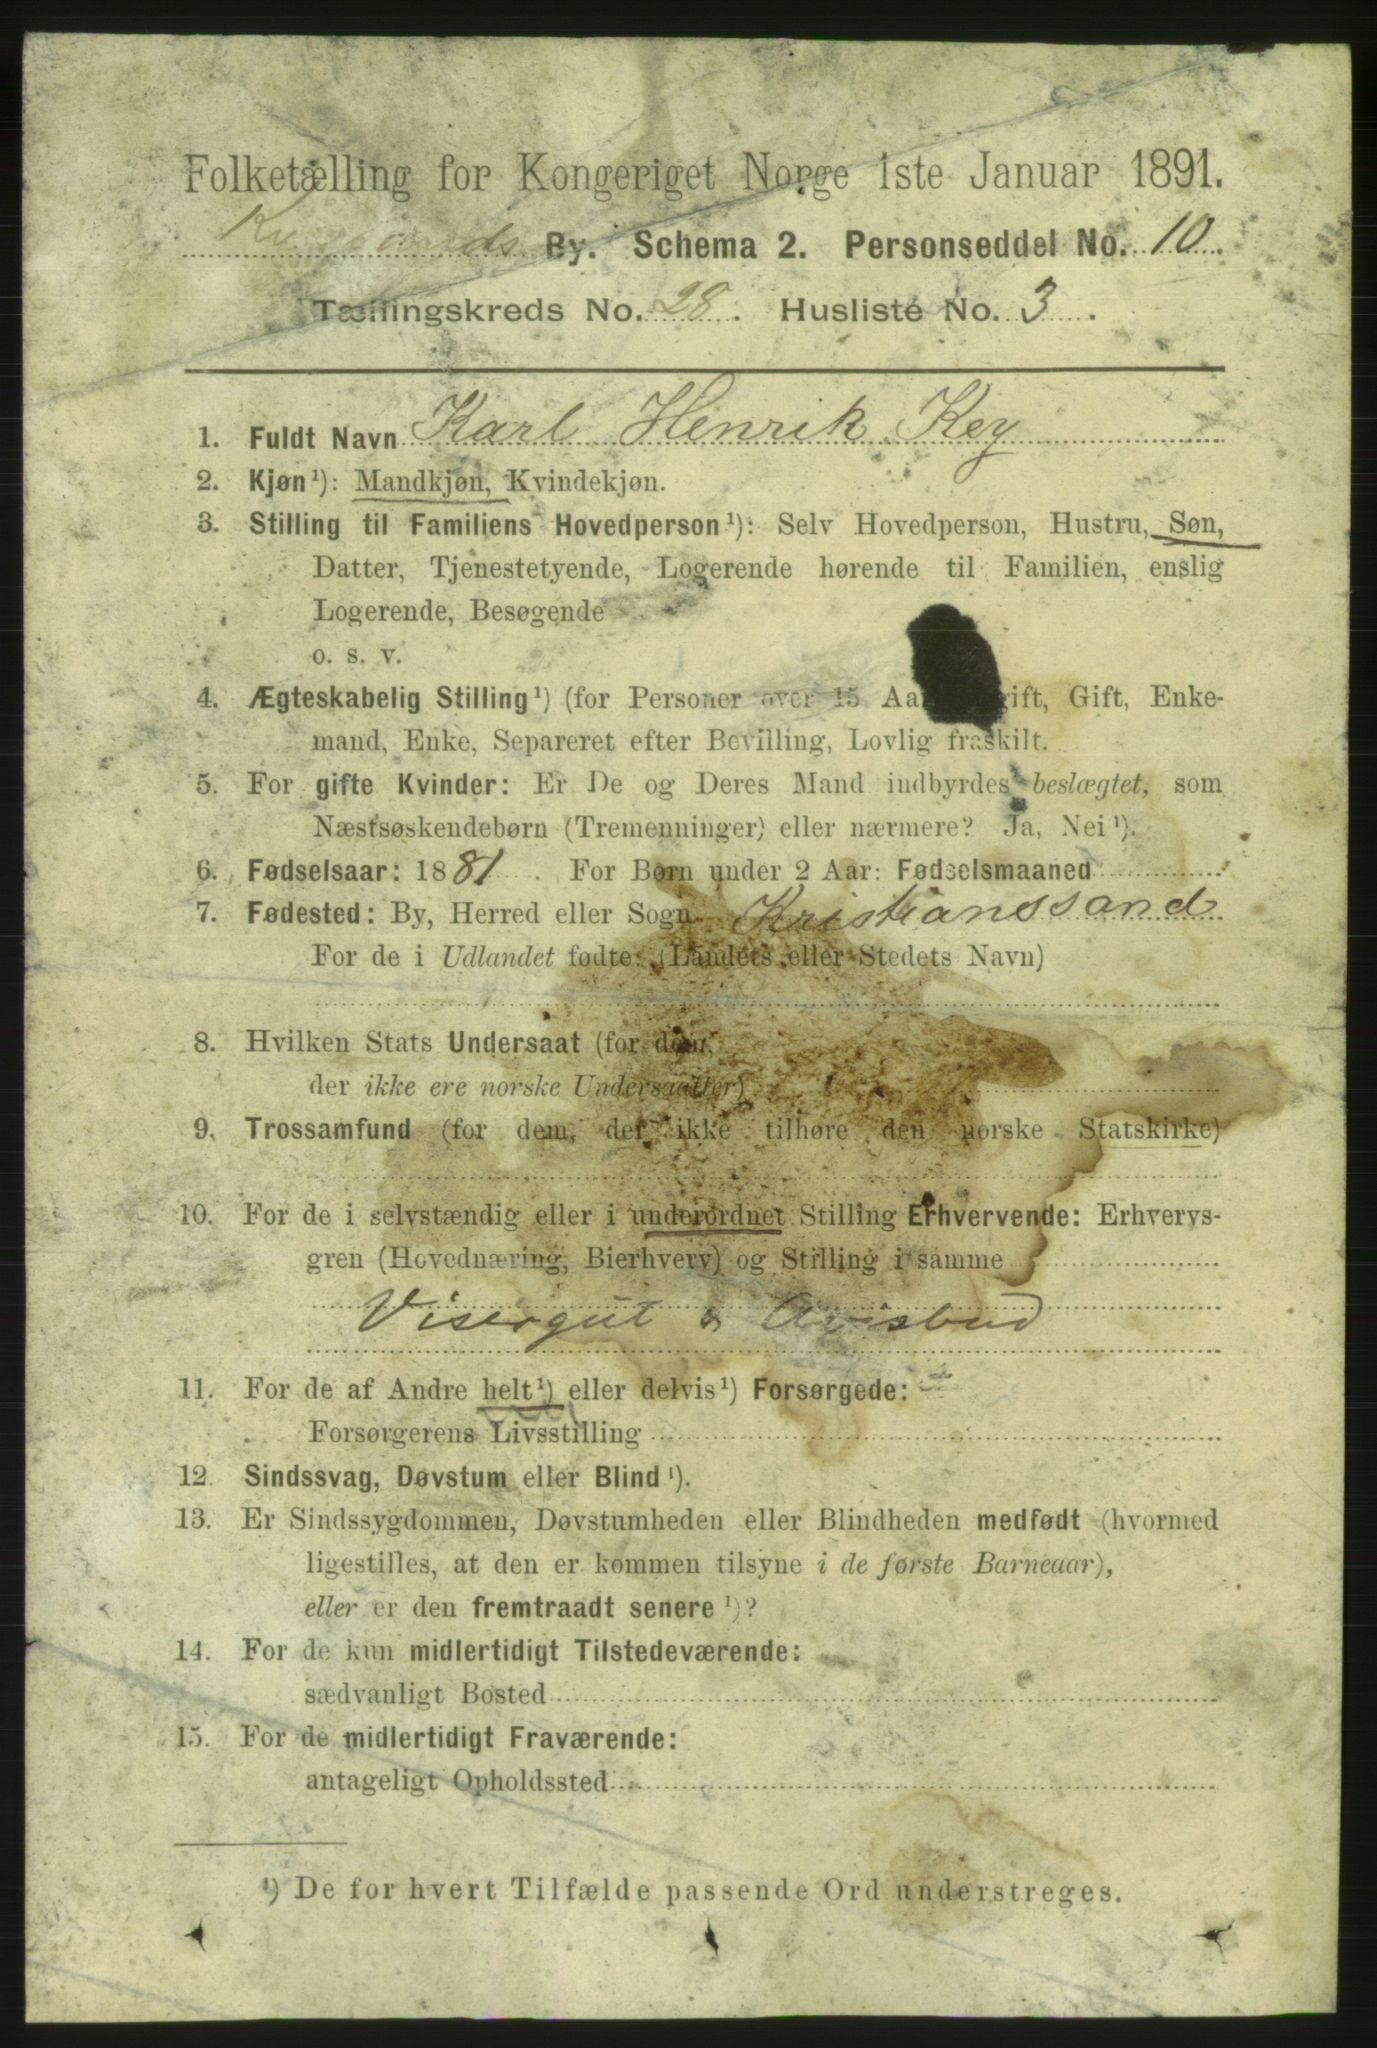 Folketælling for Kongeriget Norge 1ste Januar 1891.
By. Schema 2. Personseddel No. 10.
Tællingskreds No. 28. Husliste No. 3.
1. Fuldt Navn Karl Henrik Key
2. Kjøn ¹): Mandkjøn, Kvindekjøn.
3. Stilling til Familiens Hovedperson ¹): Selv Hovedperson, Hustru, Søn,
Datter, Tjenestetyende, Logerende hørende til Familien, enslig
Logerende, Besøgende
o. s. v.
4. Ægteskabelig Stilling ¹) (for Personer over 15 Gift, Enke-
mand, Enke, Separeret efter Bevilling, Lovlig fraskilt.
5. For gifte Kvinder: Er De og Deres Mand indbyrdes beslægtet, som
Næstsøskendebørn (Tremenninger) eller nærmere? Ja, Nei ¹).
6. Fødselsaar: 1881. For Børn under 2 Aar: Fødselsmaaned
7. Fødested: By, Herred eller Sogn Kristianssand
For de i Udlandet fødte: (Landets eller Stedets Navn)
8. Hvilken Stats Undersaat (for dem,
der ikke ere norske Undersaatter)
9. Trossamfund (for dem, der ikke tilhøre den norske Statskirke)
10. For de i selvstændig eller i underordnet Stilling Erhvervende: Erhvervs-
gren (Hovednæring, Bierhverv) og Stilling i samme
Visergut & Avisbud
11. For de af Andre helt ¹) eller delvis ¹) Forsørgede:
Forsørgerens Livsstilling
12. Sindssvag, Døvstum eller Blind ¹).
13. Er Sindssygdommen, Døvstumheden eller Blindheden medfødt (hvormed
ligestilles, at den er kommen tilsyne i de første Barneaar),
eller er den fremtraadt senere ¹)?
14. For de kun midlertidigt Tilstedeværende:
sædvanligt Bosted
15. For de midlertidigt Fraværende:
antageligt Opholdssted
¹) De for hvert Tilfælde passende Ord understreges.